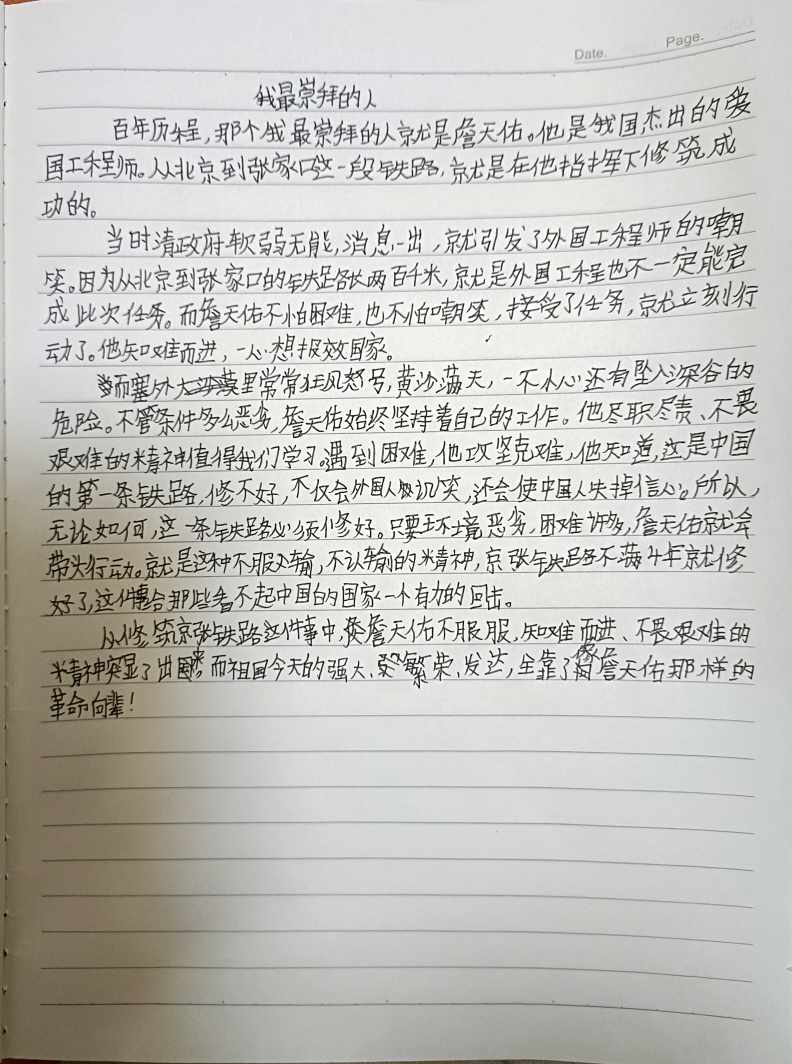 Date.
Page.
我最崇拜的人
百年历程，那个我最崇拜的人就是詹天佑。他是我国杰出的爱
国工程师。从北京到张家口这一段铁路，就是在他指挥下修筑成
功的。
当时清政府软弱无能，消息一出，就引发了外国工程师的嘲
笑。因为从北京到张家口的铁路长两百千米，就是外国工程也不一定能完
成此次任务。而詹天佑不怕困难，也不怕嘲笑，接受了任务，就立刻行
动了。他知难而进，一心想报效国家。
而塞外大漠里常常狂风怒号，黄沙满天，一不小心还有坠入深谷的
危险。不管条件多么恶劣，詹天佑始终坚持着自己的工作。他尽职尽责、不畏
艰难的精神值得我们学习。遇到困难，他攻坚克难，他知道，这是中国
的第一条铁路，修不好，不仅会外国人讥笑，还会使中国人失掉信心。所以，
无论如何，这一条铁路必须修好。只要环境恶劣，困难许多，詹天佑就会
带头行动。就是这种不服输，不认输的精神，京张铁路不满4年就修
好了，这件事给那些看不起中国的国家一个有力的回击。
从修筑京张铁路这件事中，詹天佑不服服，知难而进、不畏艰难的
精神突显了出来，而祖国今天的强大、繁荣、发达，全靠了像詹天佑那样的
革命向辈！